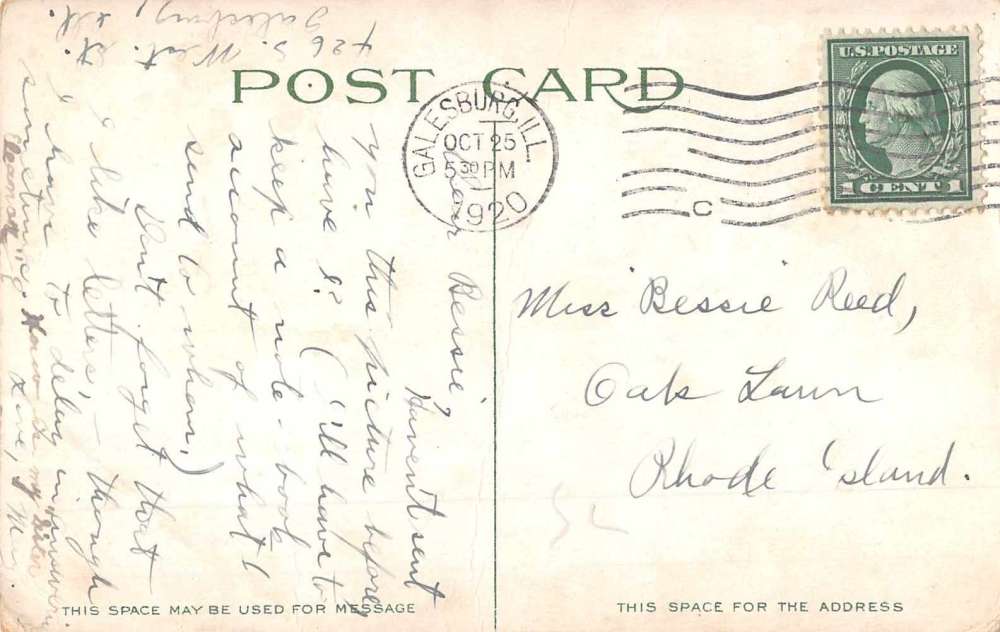 POST CARD
U.S. POSTAGE
1 CENT 1
GALESBURG, ILL.
OCT 25
5 30 PM
1920
C
426 S. West. St.
Galesburg,
Ill.
Dear Bessie,
Haven't sent
you this picture before,
have I? (I'll have to
keep a note-book
account of what I
send to whom.)
Don't forget that
I like letters, – though
I have to delay in answering
sometimes.
Love,
Miss Bessie Reed,
Oak Lawn
Rhode Island.
THIS SPACE MAY BE USED FOR MESSAGE
THIS SPACE FOR THE ADDRESS